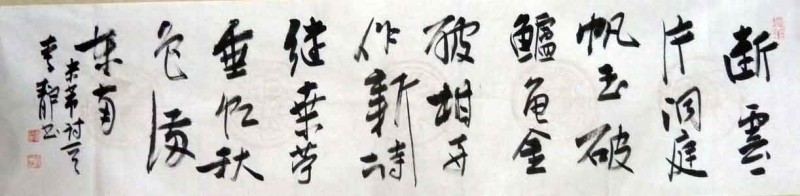 斷雲一
片洞庭
帆玉破
鱸魚金
破柑好
作新詩
继桑苧
垂虹秋
色满
東南
米芾詩一首
李静书